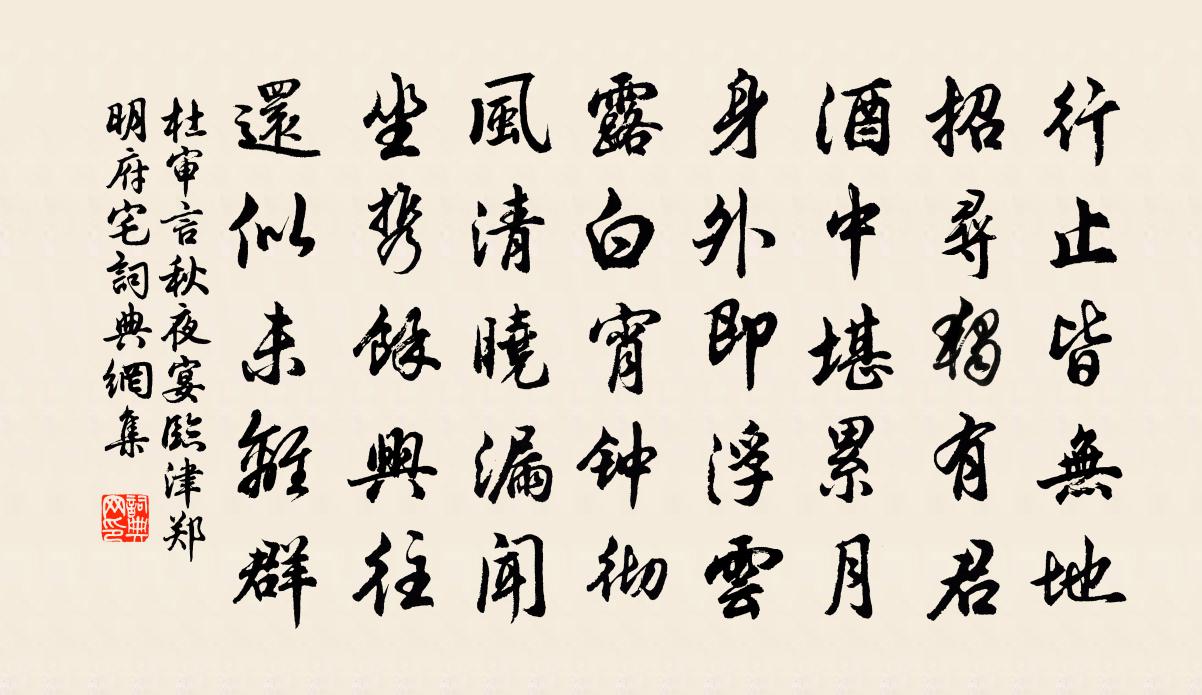 行止皆無地
招尋獨有君
酒中堪累月
身外即浮雲
露白宵钟彻
風清曉漏聞
坐携餘興往
還似未離群
杜审言秋夜宴臨津郑
明府宅詞典網集
詞典
网印